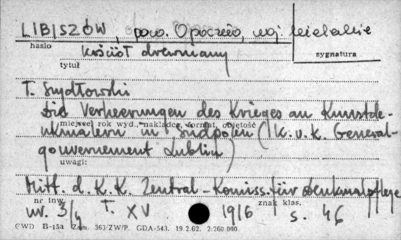 LIBISZÓW, pow. Opoczno, woj. kieleckie
hasło
sygnatura
kościół drewniany
tytuł
T. Szydłowski
Die Verheerungen des Krieges an Kunstde-
miejsce, rok wyd., nakładca, format, objętość
nkmalern in Südpolen (K.u.K. General-
gouvernement Lublin)
uwagi:
Mitt. d. K.K. Zentral-Komiss. für Denkmalpflege
nr inw.
znak klas.
nr. 3/4 T. XV 1916 s. 46
CWD B-15a Zam. 363/ZW/P. GDA-543. 19.2.62. 2:260 000.